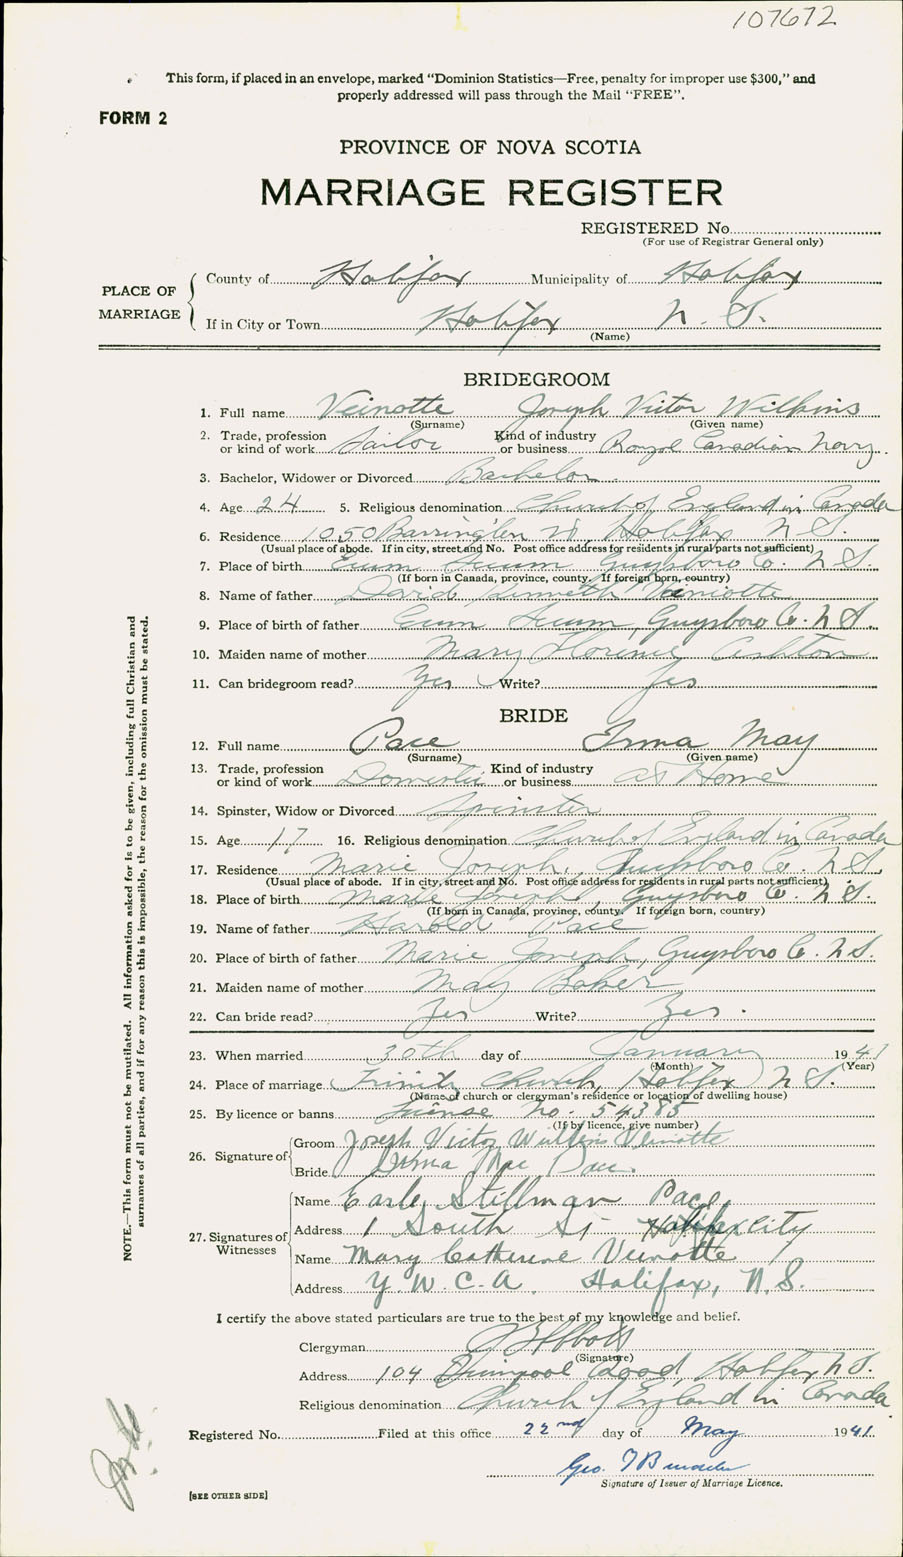 107672
This form, if placed in an envelope, marked “Dominion Statistics—Free, penalty for improper use $300,” and
properly addressed will pass through the Mail “FREE”.
FORM 2
PROVINCE OF NOVA SCOTIA
MARRIAGE REGISTER
REGISTERED No.
(For use of Registrar General only)
PLACE OF MARRIAGE
County of Halifax Municipality of Halifax
If in City or Town Halifax N. S.
(Name)
BRIDEGROOM
1. Full name Veinotte Joseph Victor Wilkins
(Surname) (Given name)
2. Trade, profession or kind of work Sailor Kind of industry or business Royal Canadian Navy.
3. Bachelor, Widower or Divorced Bachelor.
4. Age 24 5. Religious denomination Church of England in Canada
6. Residence 1050 Barrington St, Halifax N. S.
(Usual place of abode. If in city, street and No. Post office address for residents in rural parts not sufficient)
7. Place of birth Ecum Secum Guysboro Co. N. S.
(If born in Canada, province, county. If foreign born, country)
8. Name of father David Kenneth Veiniotte
9. Place of birth of father Ecum Secum, Guysboro Co. N. S.
10. Maiden name of mother Mary Florence Ashton
11. Can bridegroom read? Yes Write? Yes
BRIDE
12. Full name Pace Irma May
(Surname) (Given name)
13. Trade, profession or kind of work Domestic Kind of industry or business at Home
14. Spinster, Widow or Divorced Spinster
15. Age 17 16. Religious denomination Church of England in Canada
17. Residence Marie Joseph, Guysboro Co. N. S.
(Usual place of abode. If in city, street and No. Post office address for residents in rural parts not sufficient)
18. Place of birth Marie Joseph, Guysboro Co. N. S.
(If born in Canada, province, county. If foreign born, country)
19. Name of father Harold Pace
20. Place of birth of father Marie Joseph, Guysboro Co. N. S.
21. Maiden name of mother May Baker
22. Can bride read? Yes Write? Yes.
23. When married 30th day of January 1941
(Month) (Year)
24. Place of marriage Trinity Church, Halifax N. S.
(Name of church or clergyman's residence or location of dwelling house)
25. By licence or banns License No. 54385
(If by licence, give number)
26. Signature of
Groom Joseph Victor Wilkins Veinotte
Bride Irma Mae Pace.
27. Signatures of Witnesses
Name Earle Stillman Pace,
Address 1 South St- Halifax City
Name Mary Catherine Veinotte
Address Y. W. C. A. Halifax, N. S.
I certify the above stated particulars are true to the best of my knowledge and belief.
Clergyman
(Signature)
Address 104 Quinpool Road, Halifax, N. S.
Religious denomination Church of England in Canada
Registered No. Filed at this office 22nd day of May 1941.
Geo.
Signature of Issuer of Marriage Licence.
[SEE OTHER SIDE]
NOTE.—This form must not be mutilated. All information asked for is to be given, including full Christian and
surnames of all parties, and if for any reason this is impossible, the reason for the omission must be stated.